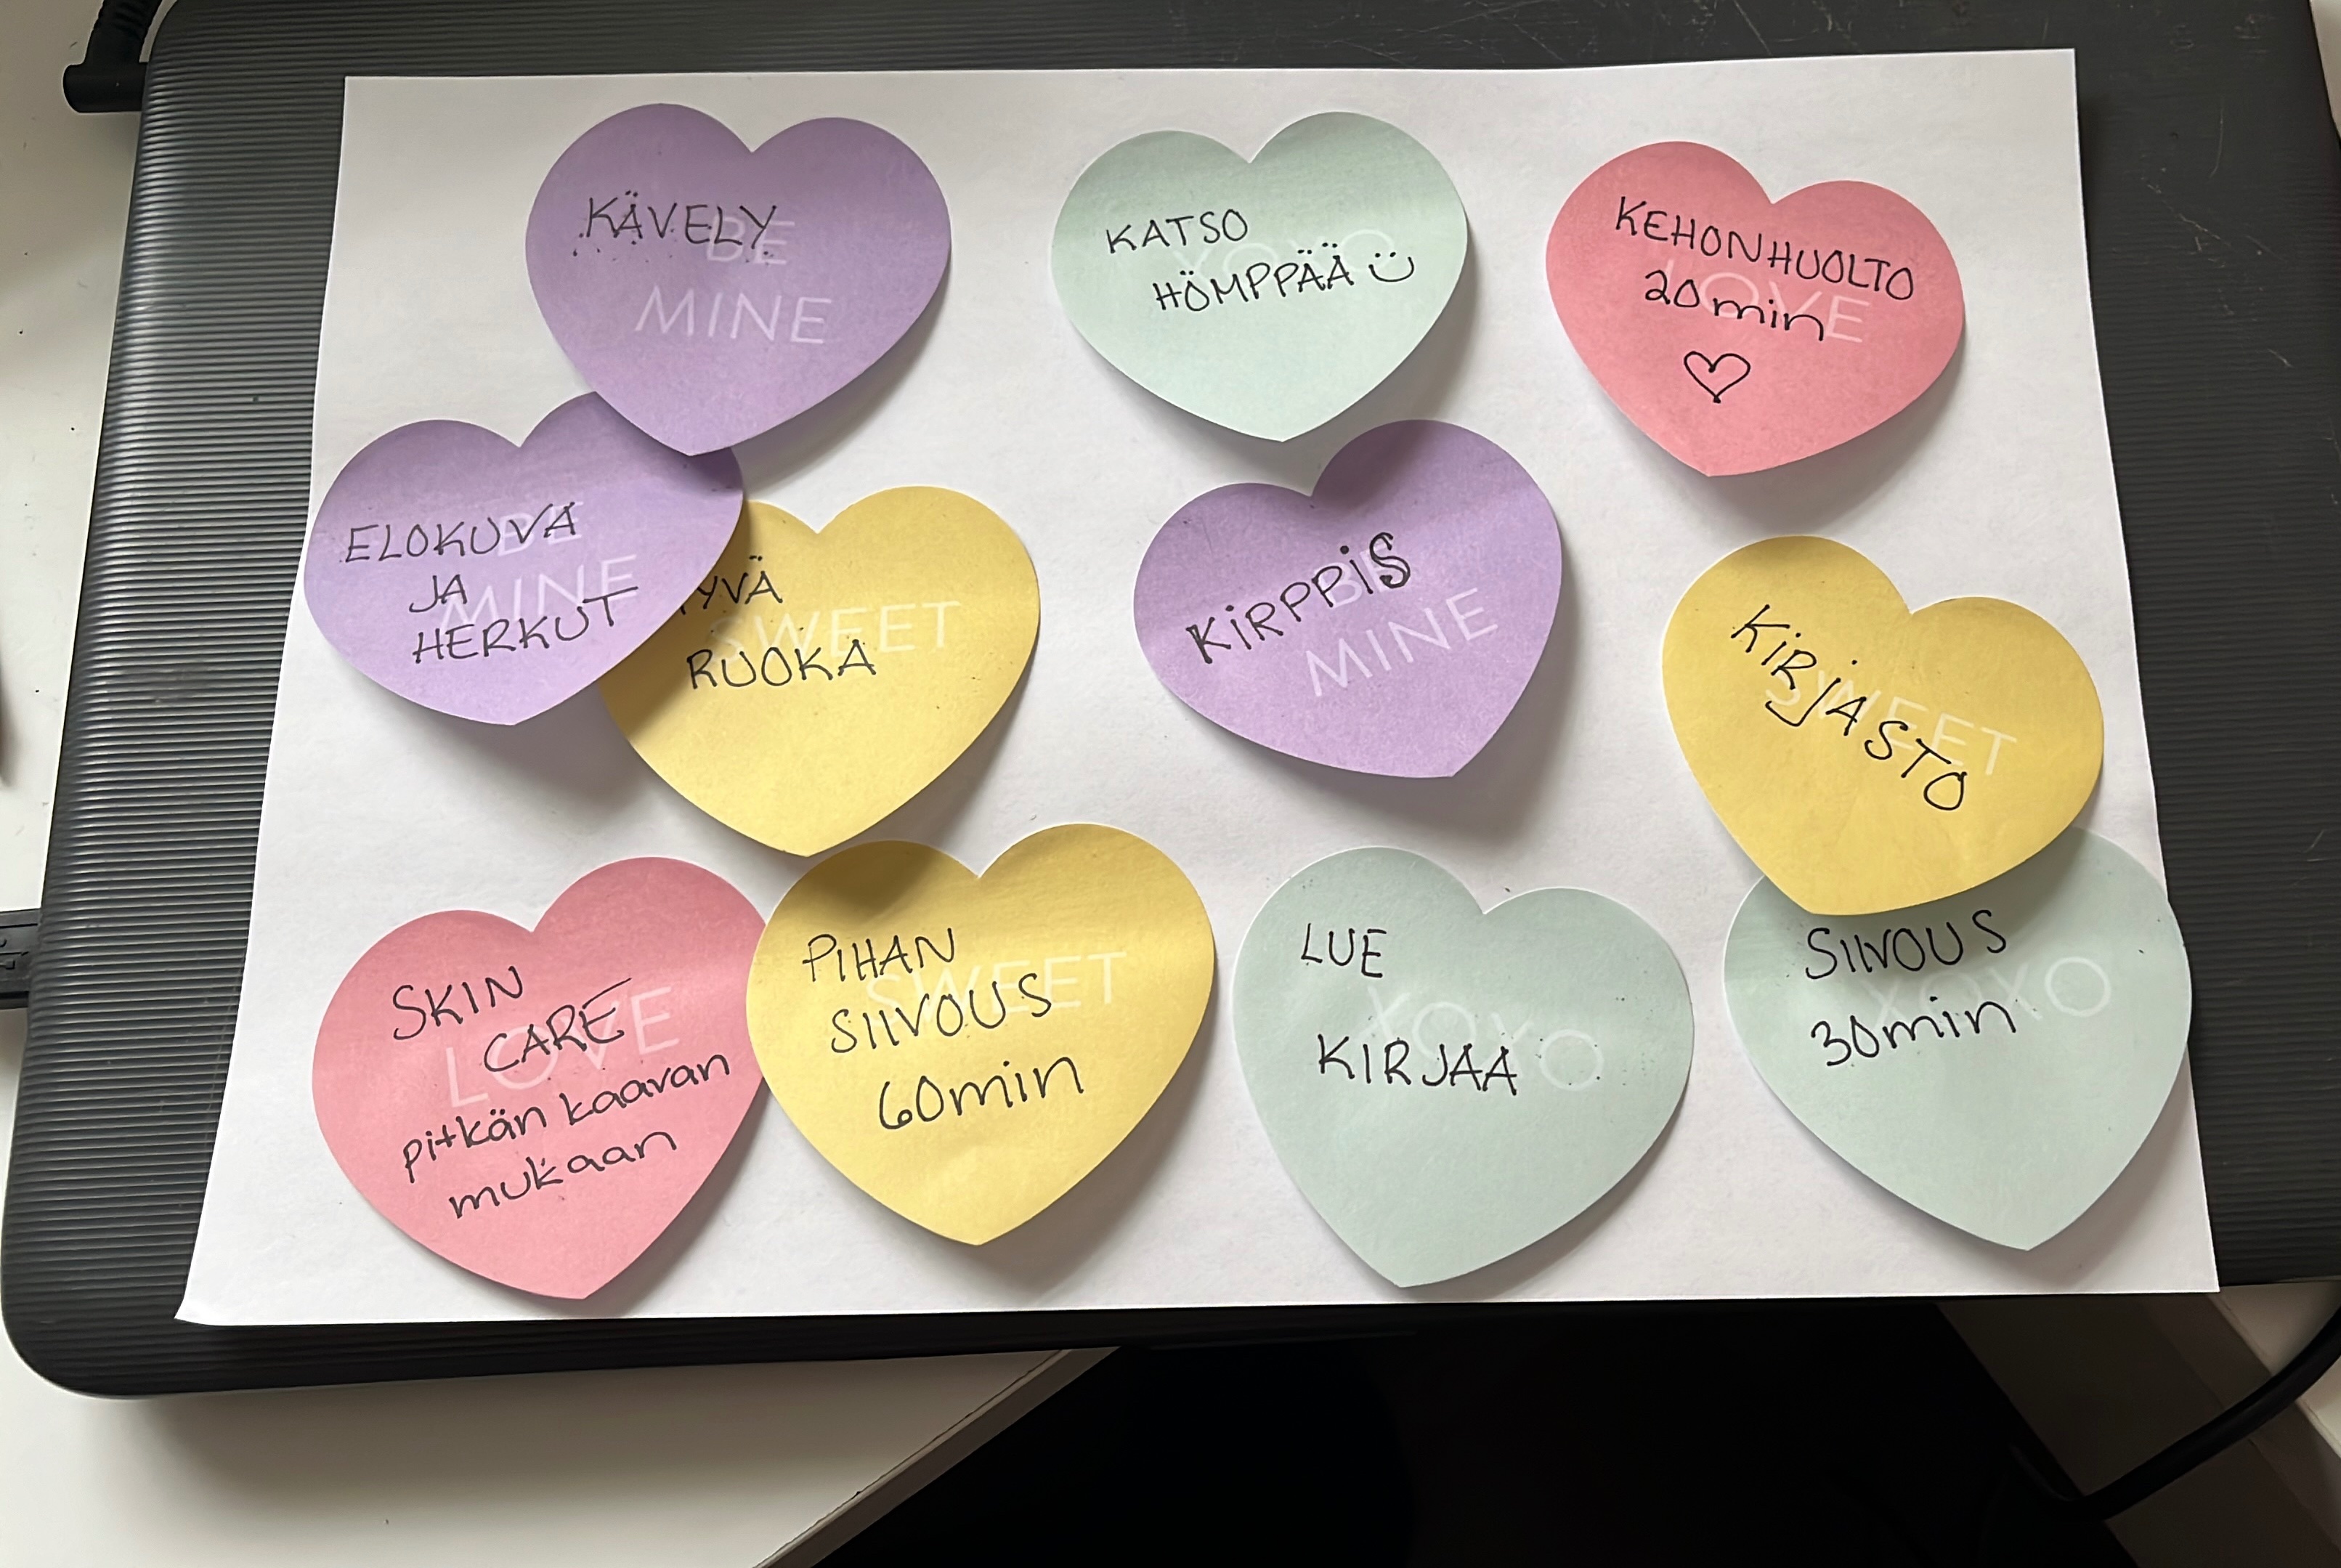 KÄVELY
BE
MINE
KATSO
HÖMPPÄÄ
XOXO
KEHONHUOLTO
20min
LOVE
ELOKUVA
JA
HERKUT
BE
MINE
YVÄ
RUOKA
SWEET
KiRPPiS
BE
MINE
KiRJASTO
SWEET
SKIN
CARE
pitkän kaavan
mukaan
LOVE
PIHAN
SIIVOUS
60min
SWEET
LUE
KIRJAA
XOXO
SIIVOUS
30min
XOXO